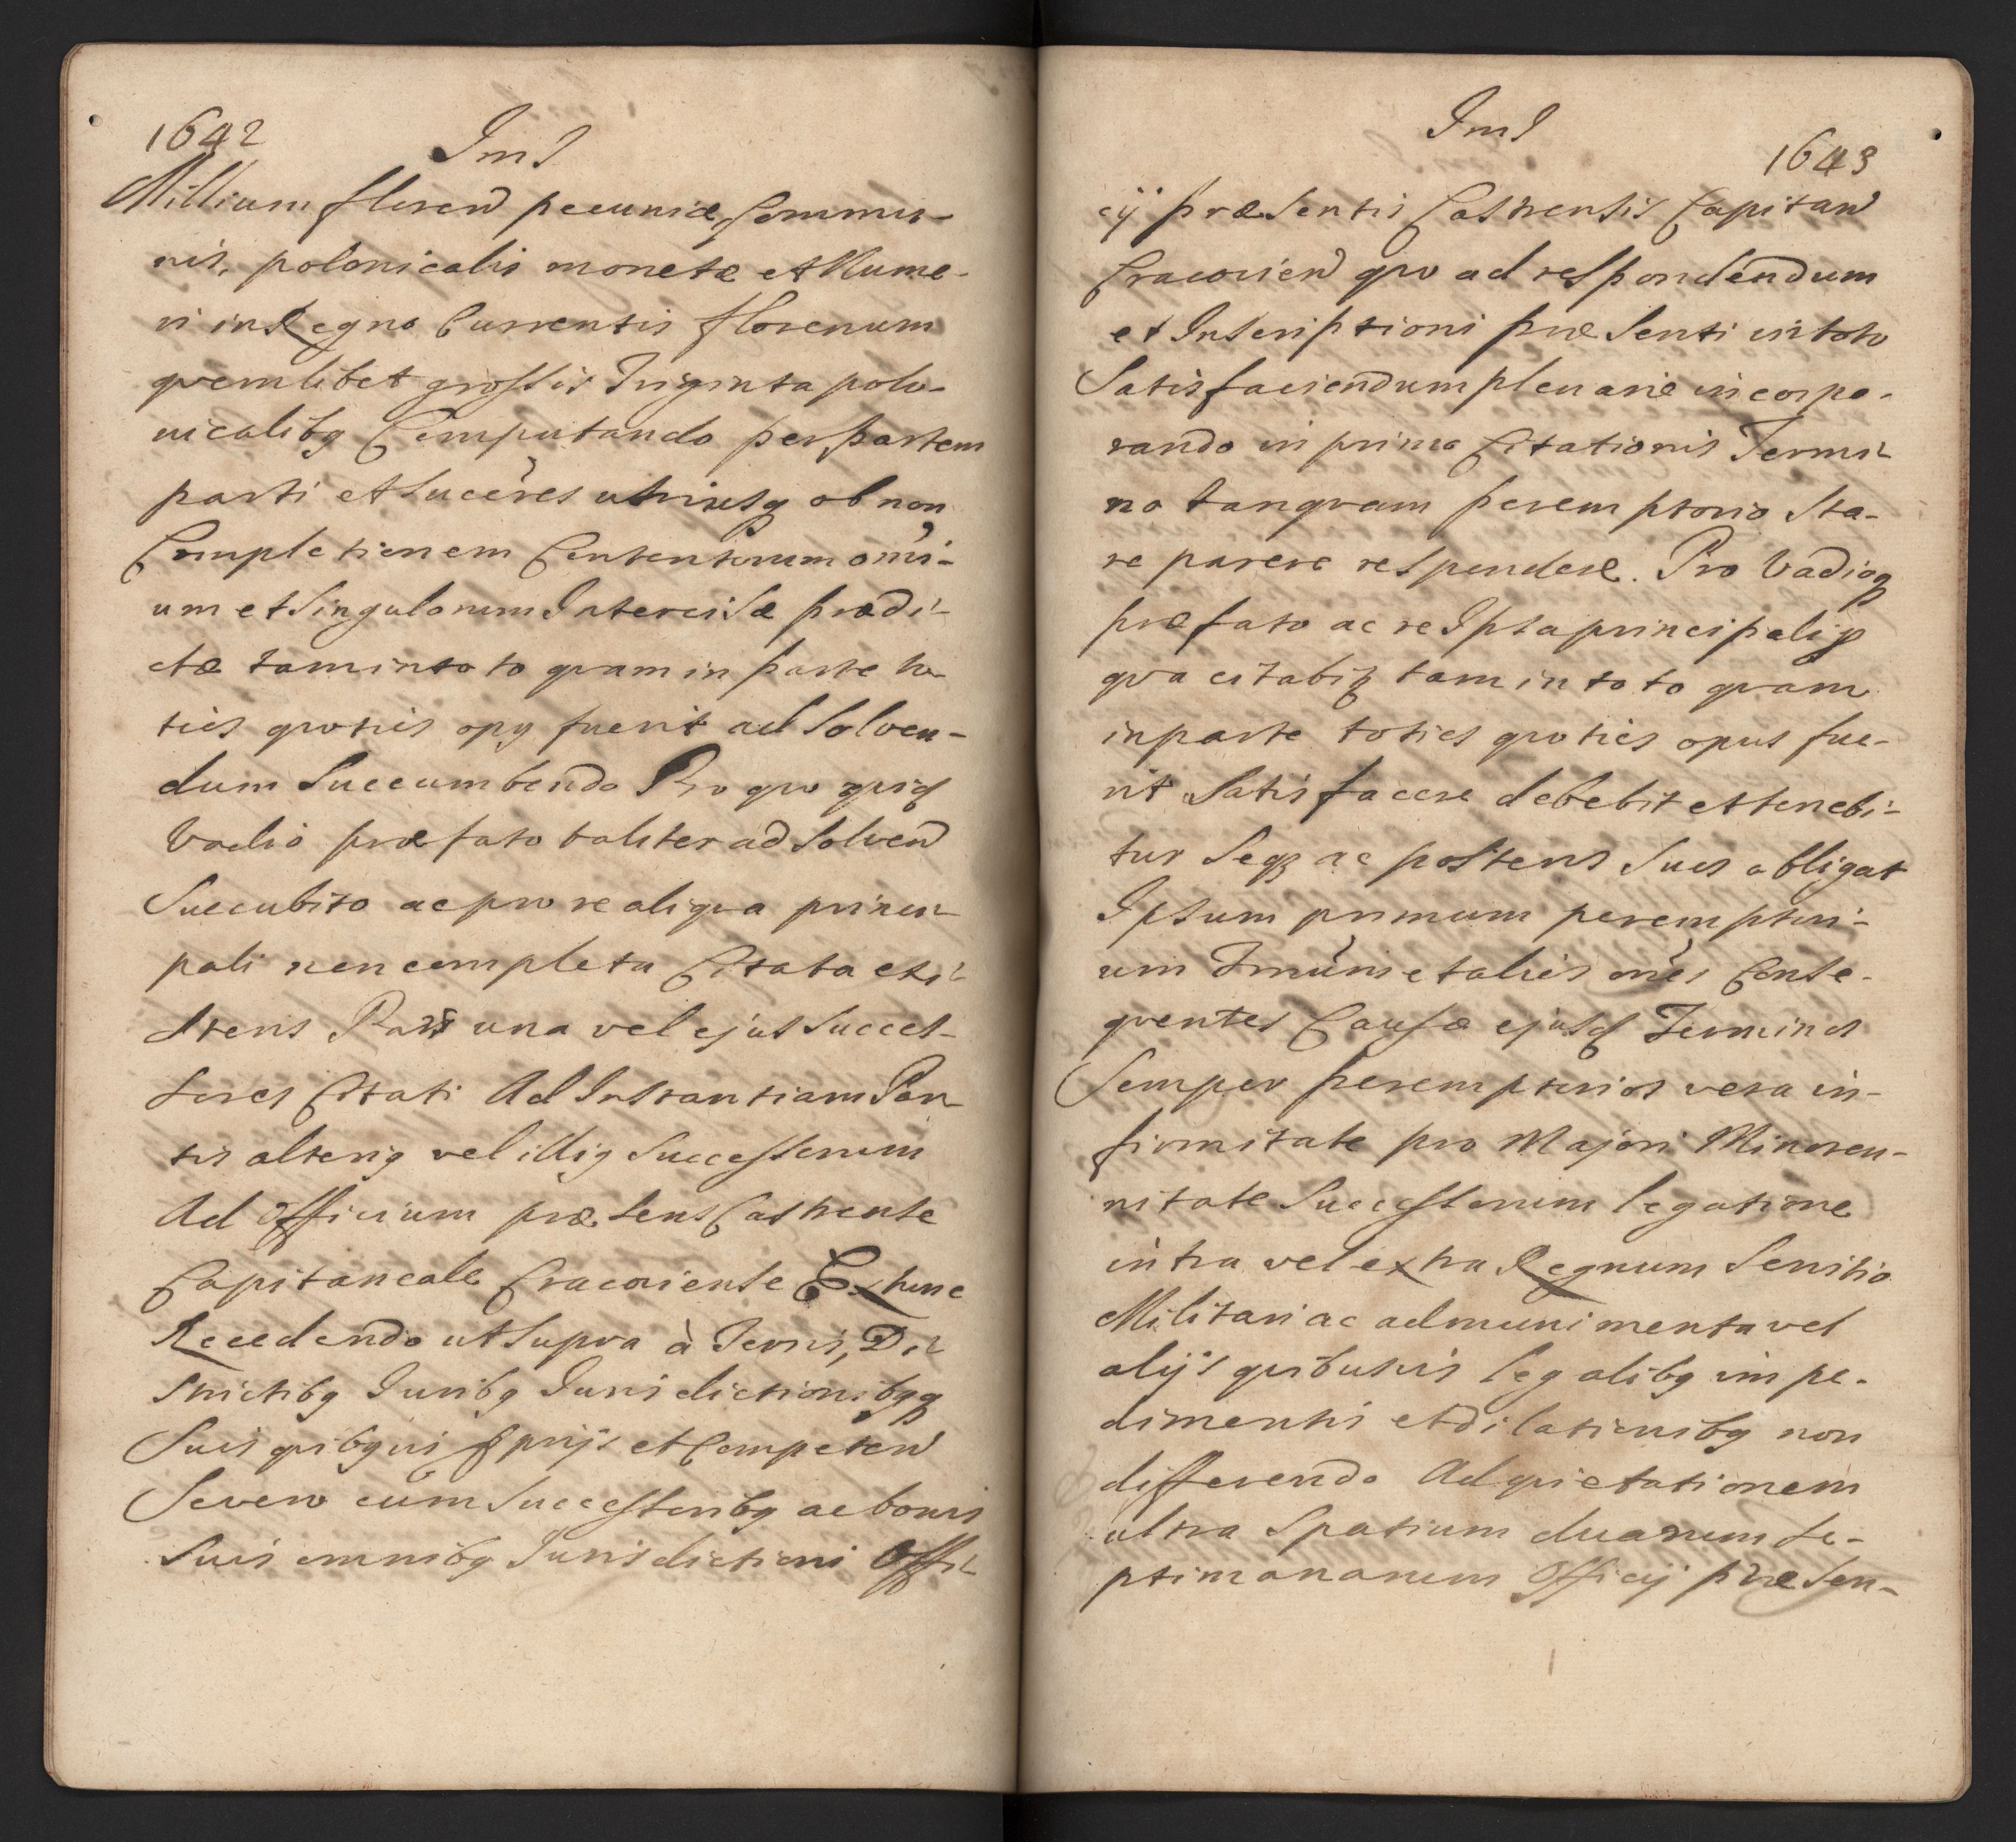 1642
Ims
Millium floren pecuniæ Commu-
nis, polonicalis monetæ et Nume-
ri in Regno Currentis florenum
qvemlibet grossis Triginta polo-
nicalibq Computando per partem
parti et succeres utriusq ob non
Completionem Contentorum omi-
um et Singulorum Intercisæ prædi-
ctæ tam in toto qvam in parte to-
ties qvoties opq fuerit ad Solven-
dum Succumbendo Pro qvo qvidq
Vadio præfato taliter ad Solvend
Succubito ac pro re aliqva princi-
pali non completa Citata exi-
stens Pars una vel ejus Succes-
sores Citati Ad Instantiam Par-
tis alteriq vel illiq Successorum
Ad Officium præsens Castrense
Capitaneale Cracoviense Extunc
Recedendo ut Supra à Terris, Di-
strictibq Juribq Jurisdictionibqq
Suis qvibqvis pprijs et Competen
Severo cum Successoribq ac bonis
Suis omnibq Jurisdictioni Offi-
Ims
1643
cij præsentis Castrensis Capitan
Cracovien qvo ad respondendum
et Inscriptioni præsenti in toto
Satisfaciendum plenarie incorpo-
rando in primo Citationis Termi-
no tanqvam peremptorio Sta-
re parere respondere. Pro Vadioq
præfato ac re Ipsa principali p
qva citabit tam in toto qvam
in parte toties qvoties opus fue-
rit Satisfacere debebit et tenebi-
tur Seqz ac posteros Suos obligat
Ipsum primum peremptori-
um Imunis et alios omes Conse-
qventes Causæ ejusd Terminos
Semper peremptorios vera in-
firmitate pro Majori Minoren-
nitate Successorum legatione
intra vel extra Regnum Servitio
Militari ac admunimenta vel
alijs qvibusvis legalibq impe-
dimentis et dilationibq non
differendo Ad qvietationem
ultra Spatium duarum se-
ptimanarum Officij præsen-